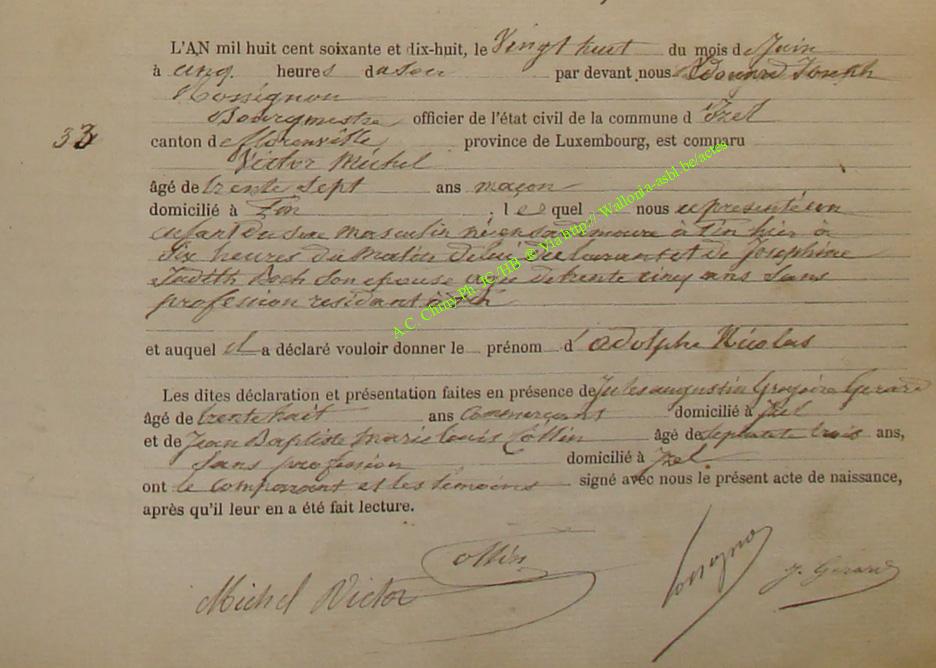 L'AN mil huit cent soixante et dix-huit, le Vingt huit du mois de Juin
à cinq heures du soir par devant nous Edouard Joseph
Rossignon
Bourgmestre officier de l'état civil de la commune d'Izel
33
canton de Florenville, province de Luxembourg, est comparu
Victor Michel
âgé de trente sept ans maçon
domicilié à Pin ; lequel nous a présenté un
enfant du sexe masculin né en sa demeure à Pin hier à
six heures du matin de lui déclarant et de Joséphine
Judith son épouse agée de trente cinq ans sans
profession résidant à Pin
et auquel il a déclaré vouloir donner le prénom d'Adolphe Nicolas
Les dites déclaration et présentation faites en présence de Jules augustin Grégoire Gerard
âgé de trente huit ans commerçant domicilié à Izel
et de Jean Baptiste marie louis Collin âgé de septante trois ans,
sans profession domicilié à Izel
ont le comparant et les témoins signé avec nous le présent acte de naissance,
après qu'il leur en a été fait lecture.
Collin
Michel Victor
Rossignon
J. Gerard
A.C. Chiny-Ph. JC/HB @ Via http:// Wallonia-asbl.be/actes